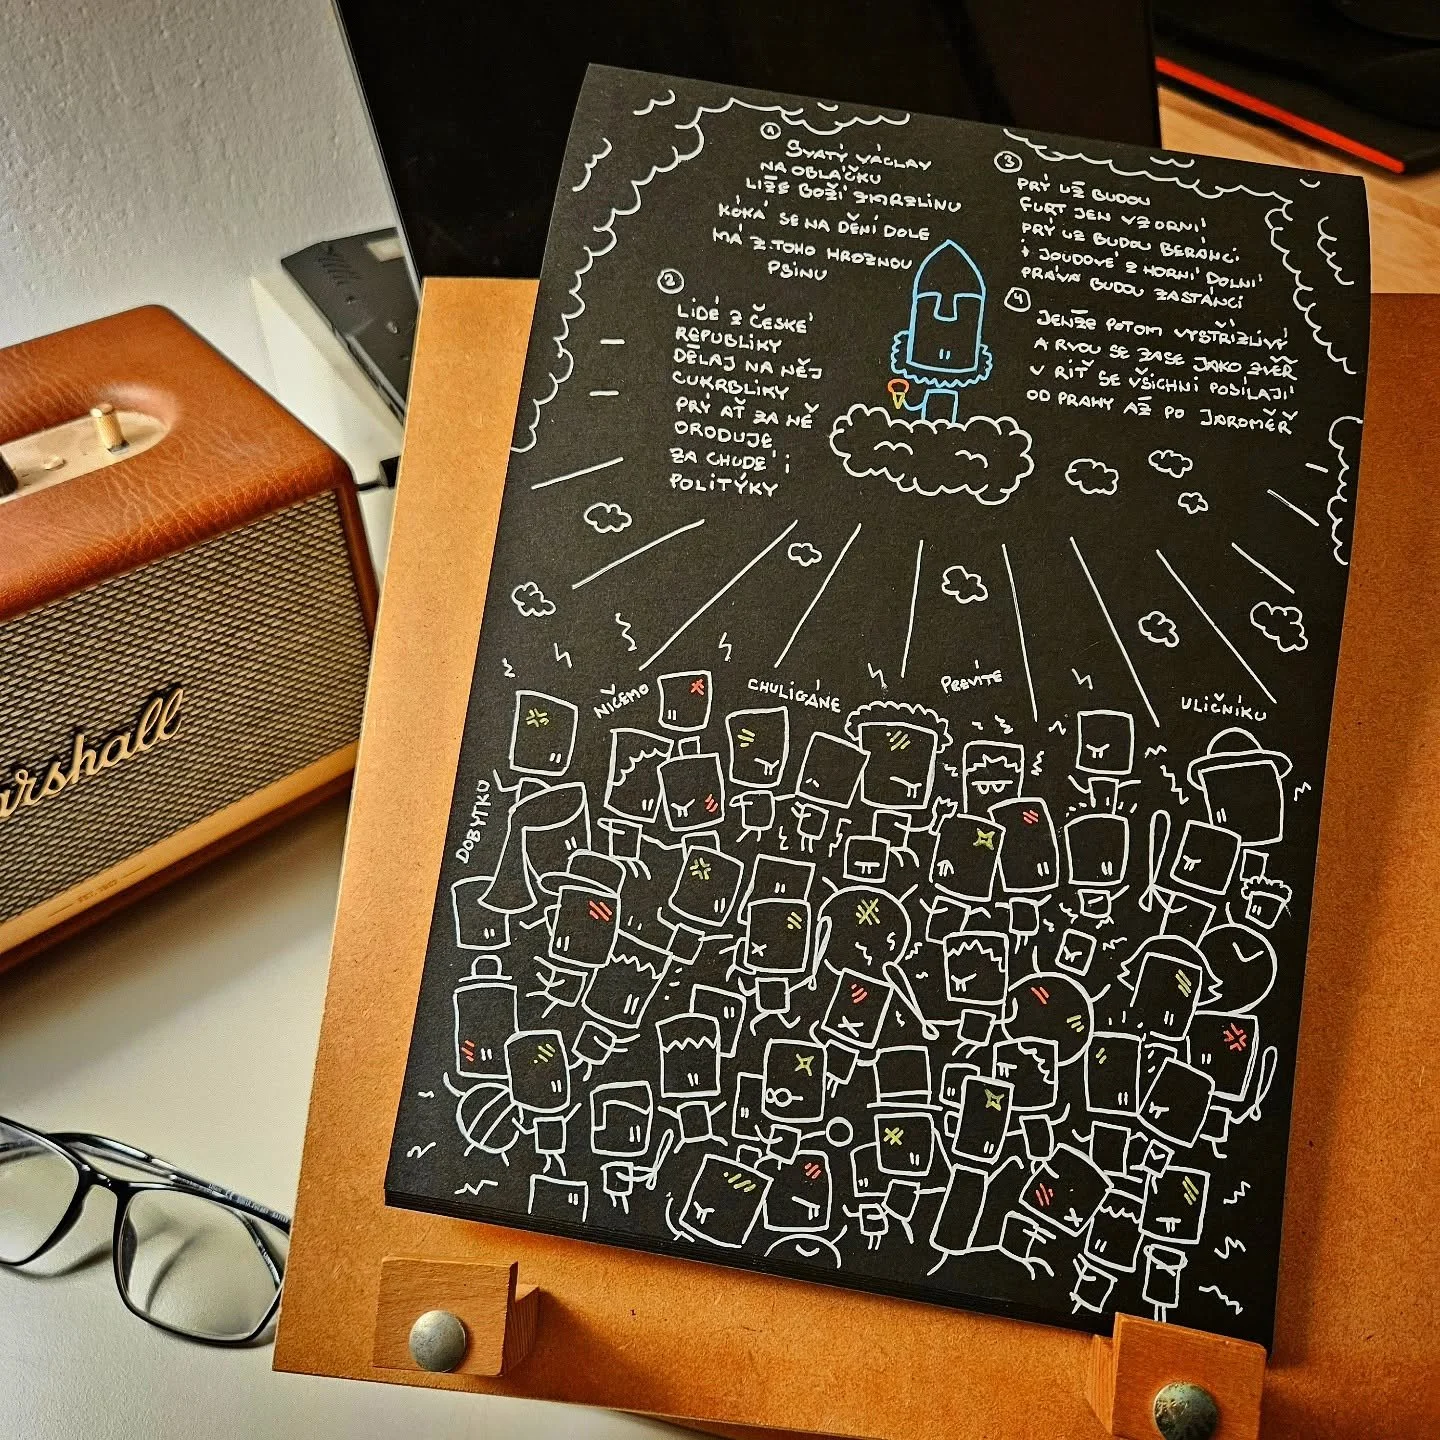 1
SVATÝ VÁCLAV
NA OBLÁČKU
LÍŽE BOŽÍ ZMRZLINU
KOKÁ SE NA DĚNÍ DOLE
MÁ Z TOHO HROZNOU
PSINU
2
LIDÉ Z ČESKÉ
REPUBLIKY
DĚLAJ NA NĚJ
CUKRBLIKY
PRÝ AŤ ZA NĚ
ORODUJE
ZA CHUDÉ I
POLITÝKY
3
PRÝ UŽ BUDOU
FURT JEN VZORNÍ
PRÝ UŽ BUDOU BERÁNCI
I JOUDOVÉ Z HORNÍ DOLNÍ
PRÁVA BUDOU ZASTÁNCI
4
JENŽE POTOM VYSTŘÍZLIVÝ
A RVOU SE ZASE JAKO ZVĚŘ
V ŘIŤ SE VŠICHNI POSÍLAJÍ
OD PRAHY AŽ PO JAROMĚŘ
NIČEMO
CHULIGÁNE
PREVÍTE
ULIČNÍKU
DOBYTKU
Marshall